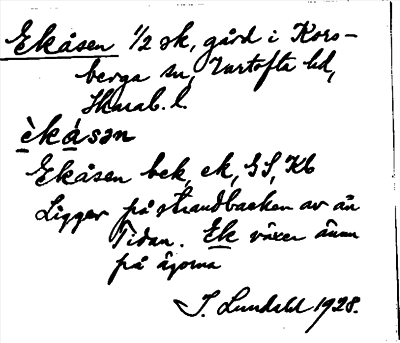 Ekåsen 1/2 sk, gård i Kors-
berga sn, Vartofta hd,
Skarab. l.
èkåsən
Ekåsen bek, ek, GS, Kb
Ligger på strandbacken av ån
Tidan. Ek växer ännu
på ägorna
J. Lundahl 1928.